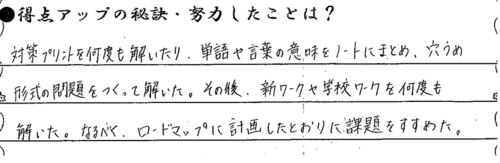 ●得点アップの秘訣・努力したことは？
対策プリントを何度も解いたり、単語や言葉の意味をノートにまとめ、穴うめ
形式の問題をつくって解いた。その後、新ワークや学校ワークを何度も
解いた。なるべく、ロードマップに計画したとおりに課題をすすめた。